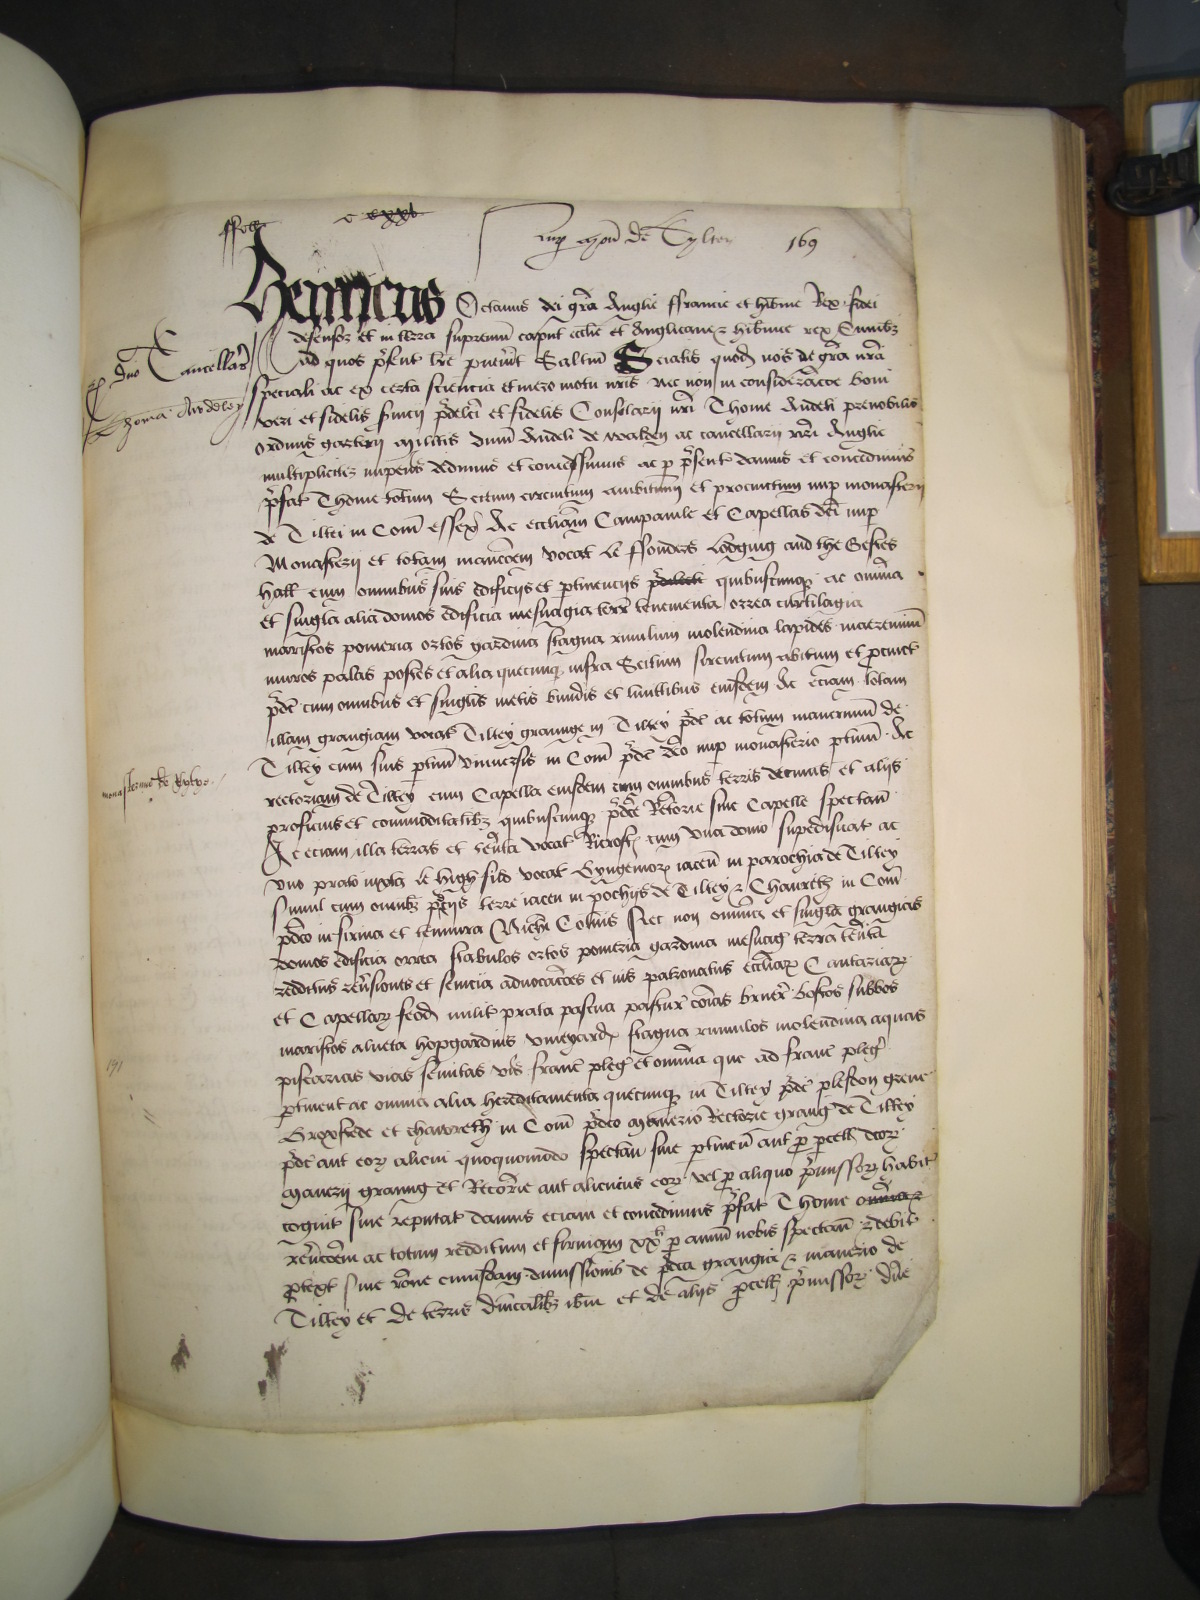 169
nup mon de Tyltey
Henricus Octavus dei gra Anglie ffrancie et hibnie Rex fidei
defensor et in terra supremu caput ecclie Anglicane hibnie rex Omnibz
Ad quos psent lre pvenint Saltm Sciatis quod nos de gra nra
speciali ac ex certa sciencia et mero motu nris Nec non in consideracoe boni
veri et fidelis svicii pdelci et fidelis Consilarii nri Thome Audeli prenobilis
ordinis garterii militis dumi Audeli de Walden ac cancellarii nri Anglie
multipliciter impens dedimus et concessimus ac p psent damus et concedimus
pfat Thome totum Scitum circuitum ambitum et procinctum nup monasterii
de Tiltei in Com essex Ac eccliam Campanile et Capellas dci nup
Monasterii et totam mancoem vocat le ffonders lodging and the Gestes
hall cum omnibus suis edificiis et ptinenciis quibuscunq ac omnia
et singla alia domos edificia mesuagia terr tenementa orrea curtilagia
mariscos pomeria ortos gardina stagna molendina lapides maeremiu
muros palas postes et alia quecunq infra Scitum circuitum abitum et pcinct
pdc cum omnibus et singlis metis bundis et limitibus eiusdem Ac eciam totam
illam grangiam vocat Tiltey graunge in Tiltey pdc ac totum maneriu de
Tiltey cum suis ptin univversis in Com pdc dco nup monasterio ptin Ac
rectoriam de Tiltey cum Capella eiusdem cum omnibus terris decimis et aliis
proficuis et commoditatibz quibuscunq pdce Rectorie sive Capelle spectan
Ac eciam illa terras et tenta vocat Ricroft cum una domo supedificat ac
uno prato iuxta le high vocat iacen in parochia de Tiltey
Simul cum omnibz terre iacen in pochiis de Tiltey Chaureth in Com
pdco in firma et tenura Michi Nec non omnia et singla grangias
domos edificia orrea stabulos ortos pomeria gardina mesuag terra tenta
redditus revsiones et svicia advocacoes et ius patronatus eccliar Cantariar
et Capellar feod milit prata pascua pastur coias bruer boscos subbos
mariscos alneta hopgardins vineyard stagna rivulos molendina aquas
piscarias vias semitas vis franc pleg et omnia que ad franc pleg
ptinent ac omnia alia hereditamenta quecunq in Tiltey pdc plesdon grene
Broxstede et chawreth in Com pdco Manerio Rectorie grang de Tiltey
pdc aut eor alicui quoquomodo spectan sive ptinen aut p pcell dcor
Manerii graung et Rectorie aut alicuius eor vel p aliquo pmissor habit
cognit sive reputat damus eciam et concedimus pfat Thome
revcoem ac totum redditum et firmam xxli p annu nobis spectan debit
ptext sive rone cuiusdam dimissionis de pdca grangia manerio de
Tiltey et de terris dnicalibz ibm et de aliis pcell pmissor dne
duo Cancellar
Thoma Awdeley
monasterium de Tyltye
191